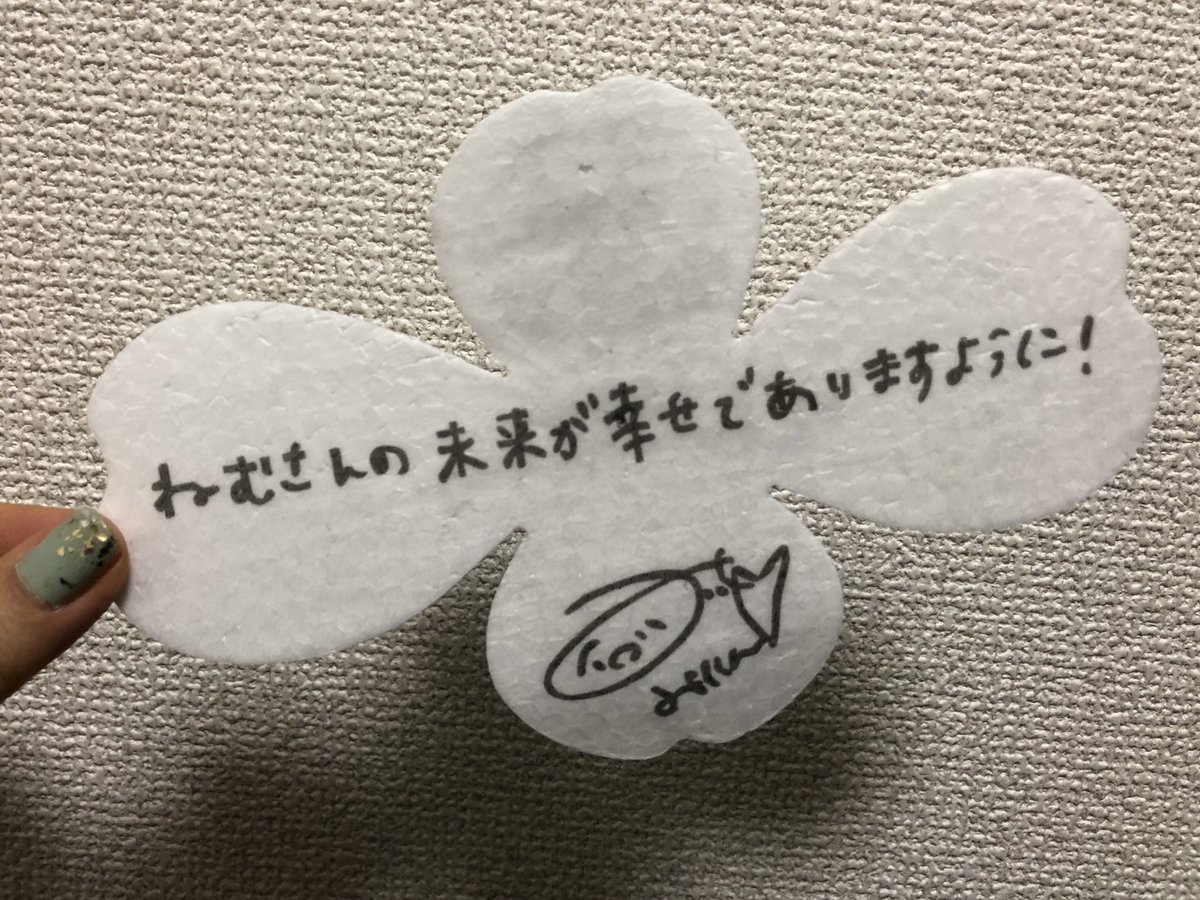 ねむさんの未来が幸せでありますように!